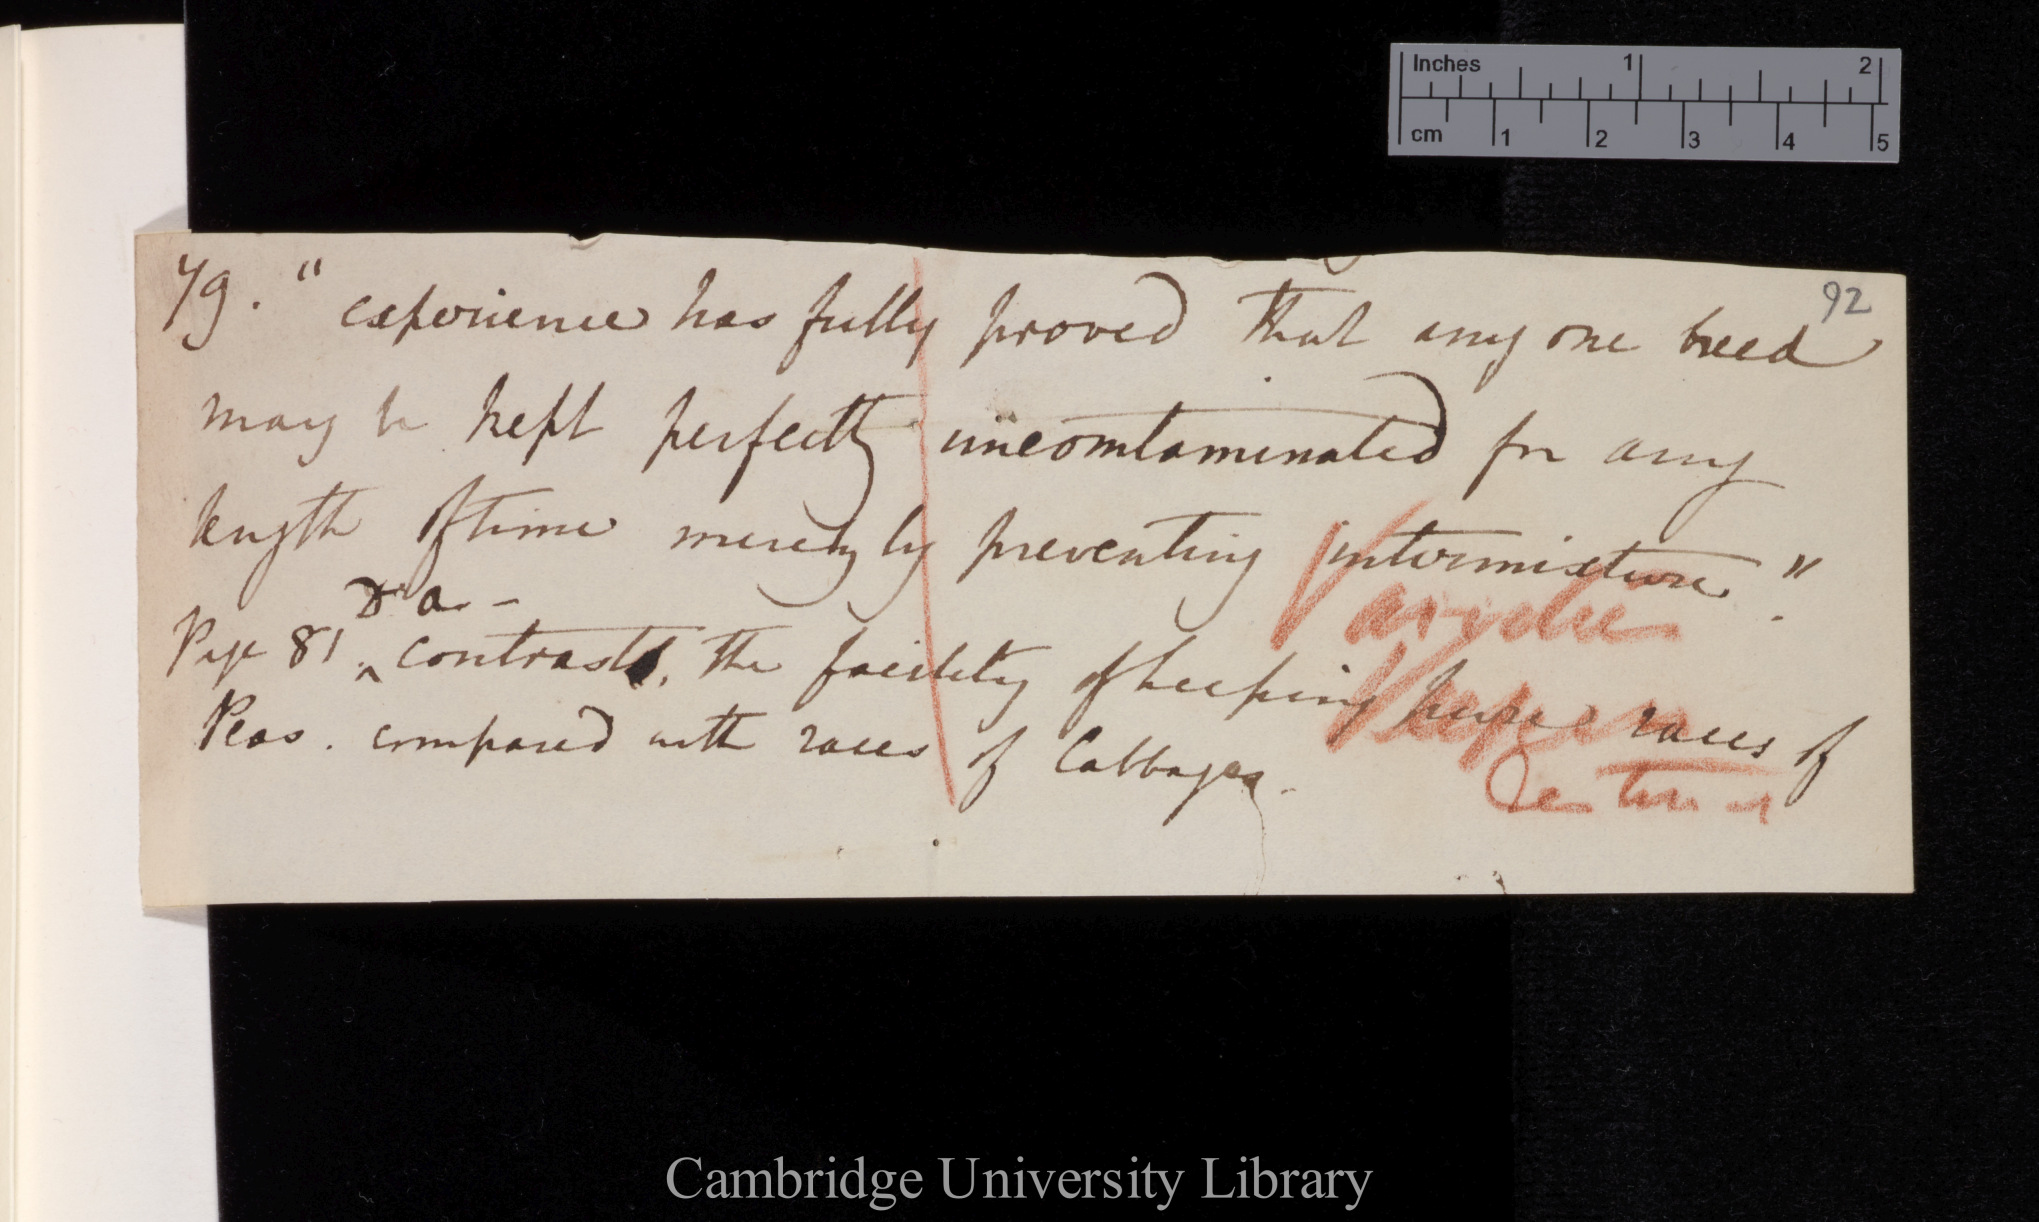 Inches 1 2
cm 1 2 3 4 5
92
79. "experience has fully proved that any one breed
may be kept perfectly uncontaminated for any
length of time merely by preventing intermixture".
Dr a. -
Page 81 ^ contrasts, the facility of keeping pure races of
Peas. compared with races of Cabbages.
Varieties
Keeping
Cambridge University Library